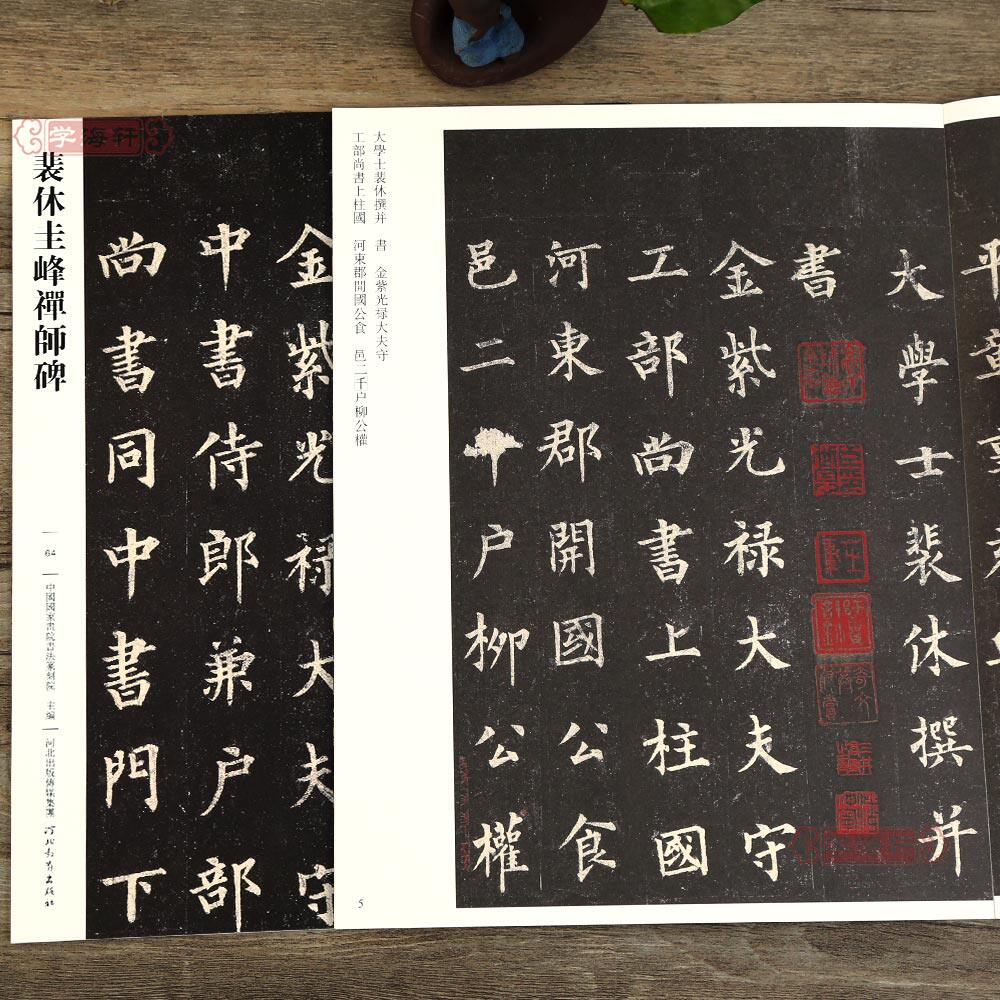 学海轩
裴休圭峰禪師碑
64
中國國家畫院書法篆刻院 主編
河北出版傳媒集團
河北教育出版社
金紫光禄大夫守
中書侍郎兼户部
尚書同中書門下
大學士裴休撰并 書 金紫光禄大夫守
工部尚書上柱國 河東郡開國公食 邑二千户柳公權
大學士裴休撰并
書
金紫光禄大夫守
工部尚書上柱國
河東郡開國公食
邑二千户柳公權
5